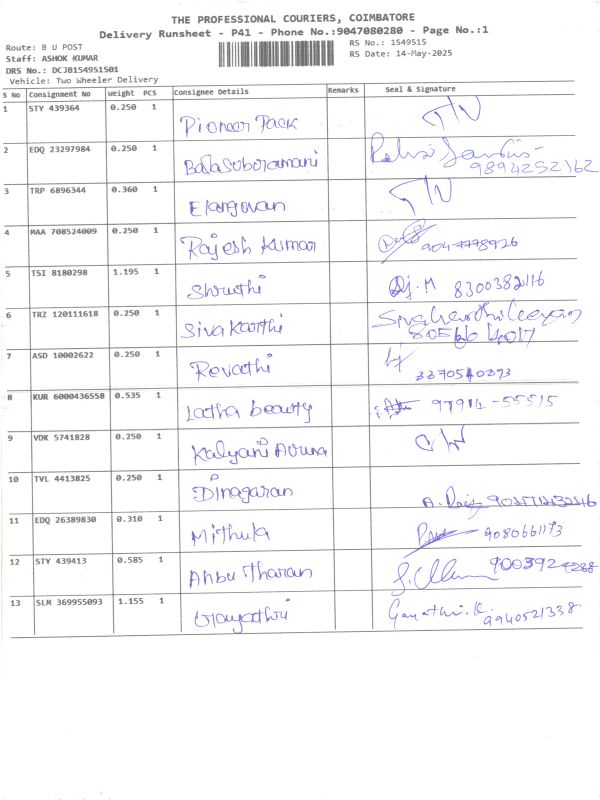 THE PROFESSIONAL COURIERS, COIMBATORE
Delivery Runsheet - P41 - Phone No.:9047080280 - Page No.:1
Route: B U POST
RS No.: 1549515
Staff: ASHOK KUMAR
RS Date: 14-May-2025
DRS No.: DCJB154951501
Vehicle: Two Wheeler Delivery
S No Consignment No Weight PCS Consignee Details Remarks Seal & Signature
1 STY 439364 0.250 1 Pioneer Pack
2 EDQ 23297984 0.250 1 Balasuboramani
9894252162
3 TRP 6896344 0.360 1 Elangovan
4 MAA 708524009 0.250 1 Rajesh Kumar
5 TSI 8180298 1.195 1 Shruthi 8300382116
6 TRZ 120111618 0.250 1 Siva Karthi
7 ASD 10002622 0.250 1 Revathi
8 KUR 6000436558 0.535 1 Latha beauty 97914-55515
9 VDK 5741828 0.250 1 Kalyani Aruna
10 TVL 4413825 0.250 1 Dinagaran
11 EDQ 26389830 0.310 1 Mithula
12 STY 439413 0.585 1 Anbu Tharan 9003924288
13 SLM 369955093 1.155 1 Gayathri Gayathri.K.
9940521338